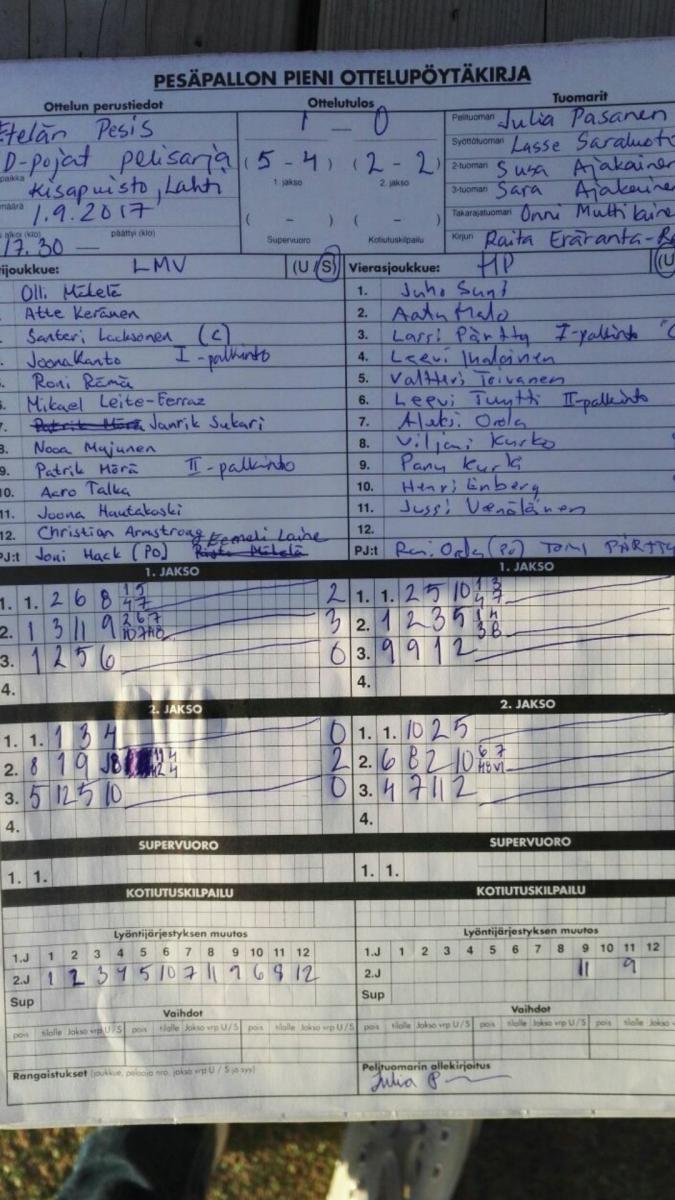 PESÄPALLON PIENI OTTELUPÖYTÄKIRJA
Ottelun perustiedot
Etelän Pesis
D-pojat pelisarja
paikka Kisapuisto, Lahti
1.9.2017
alkoi (klo) päättyi (klo)
17.30 —
Ottelutulos
1 — 0
(5 - 4) (2 - 2)
1. jakso 2. jakso
( - ) ( - )
Supervuoro Kotiutuskilpailu
Tuomarit
Pelituomari Julia Pasanen
Syöttötuomari Lasse
2-tuomari Susa Ajakainen
3-tuomari Sara Ajakainen
Takarajatuomari Onni
Kirjuri Raita Eräranta-
LMV (U/S)
Olli Mäkelä
Atte Keränen
Santeri Laaksonen (C)
Joona Kanto I-palkinto
Roni Rämä
Mikael Leite-Ferraz
7. Janrik Sukari
8. Nooa Majunen
9. Patrik Mörä II-palkinto
10. Aaro Talka
11. Joona Hautakoski
12. Christian Armstrong
PJ:t Joni Hack (PO) Eemeli Laine
Vierasjoukkue: HP (U
1. Juho Suni
2. Aatu Halo
3. Lassi Pärtty I-palkinto
4. Leevi Ihalainen
5. Valtteri Toivanen
6. Leevi Tuytti II-palkinto
7. Aleksi Orola
8. Viljami Kurko
9. Panu Kurki
10. Henri Enberg
11. Jussi Venäläinen
12.
PJ:t (PO) TOMI PÄRTTY
1. JAKSO
1. 1. 2 6 8 15 47 2
2. 1 3 11 9 3
3. 1 2 5 6 0
4.
1. JAKSO
1. 1. 2 5 10 13 47
2. 1 2 3 5 14 38
3. 9 9 1 2
4.
2. JAKSO
1. 1. 1 3 4 0
2. 8 1 9 2
3. 5 12 5 10 0
4.
2. JAKSO
1. 1. 10 2 5
2. 6 8 2 10 67
3. 4 7 11 2
4.
SUPERVUORO
1. 1.
SUPERVUORO
1. 1.
KOTIUTUSKILPAILU
KOTIUTUSKILPAILU
Lyöntijärjestyksen muutos
1.J 1 2 3 4 5 6 7 8 9 10 11 12
2.J 1 2 3 4 5 10 7 11 9 6 8 12
Sup
Lyöntijärjestyksen muutos
1.J 1 2 3 4 5 6 7 8 9 10 11 12
2.J 11 9
Sup
Vaihdot
pois tilalle Jakso vrp U/S pois tilalle Jakso vrp U/S pois tilalle Jakso vrp U/S
Vaihdot
pois tilalle Jakso vrp U/S pois tilalle Jakso vrp U/S pois tilalle Jakso
Rangaistukset (joukkue, pelaaja nro, jakso vrp U / S ja syy)
Pelituomarin allekirjoitus
Julia P